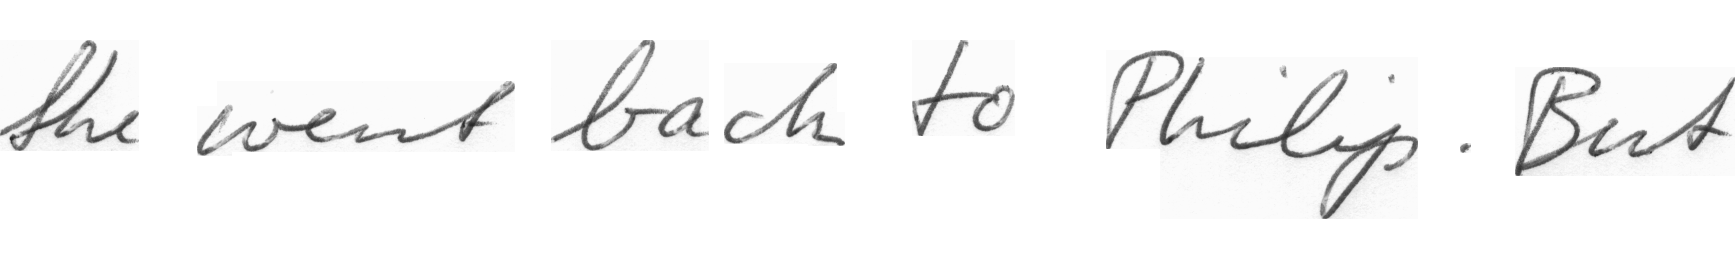 She went back to Philip. But